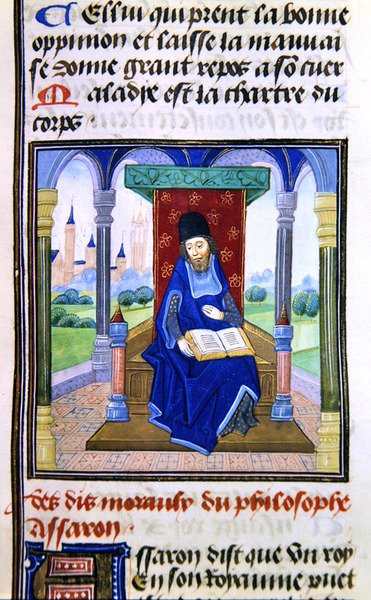 Cellui qui prent la bonne
oppinion et laisse la mauuai
se donne grant repos a so᷉ cuer
Maladie est la chartre du
corps
Des dis moraulx du philosophe
Assaron
Assaron dist que un roy
en son royaume puet